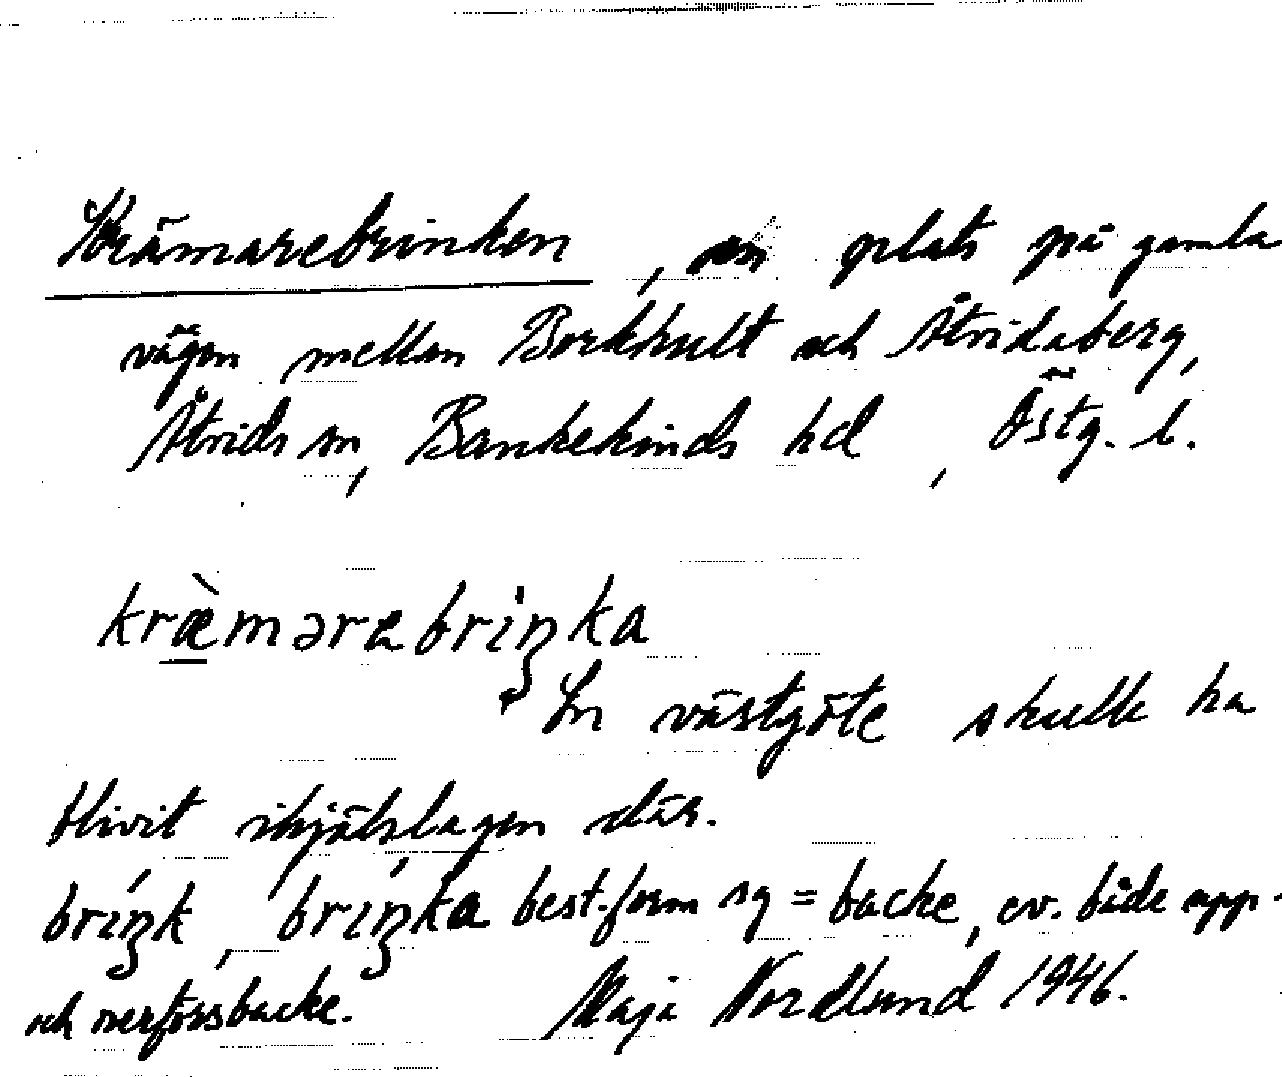 Krämarebrinken, en plats på gamla
vägen mellan Borkhult och Åtvidaberg,
Åtvids sn, Bankekinds hd, Östg. l.
kræ̀mərɐbriŋka
En västgöte skulle ha
blivit ihjälslagen där.
briŋk, briŋka best.form sg = backe, ev. både upp-
och nerförsbacke. Maja Nordlund 1946.